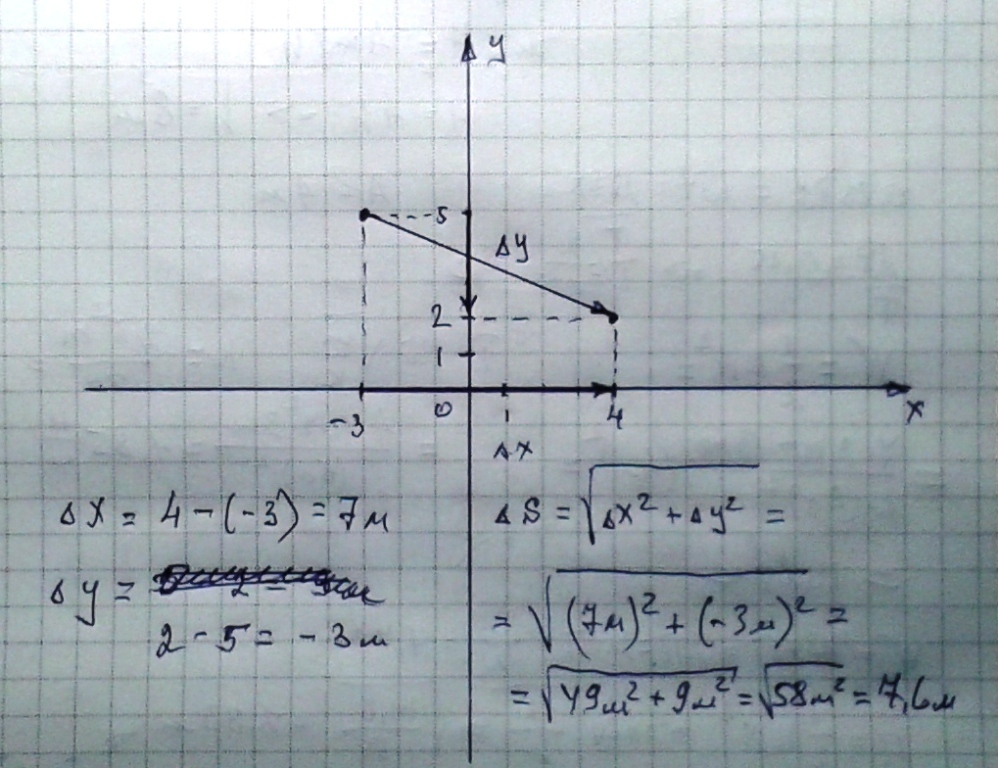 y
5
Δy
2
1
-3
0
1
4
x
Δx
Δx = 4 - (-3) = 7м
Δy =
2 - 5 = - 3м
ΔS = √Δx² + Δy² =
= √(7м)² + (-3м)² =
= √49м² + 9м² = √58м² = 7,6м